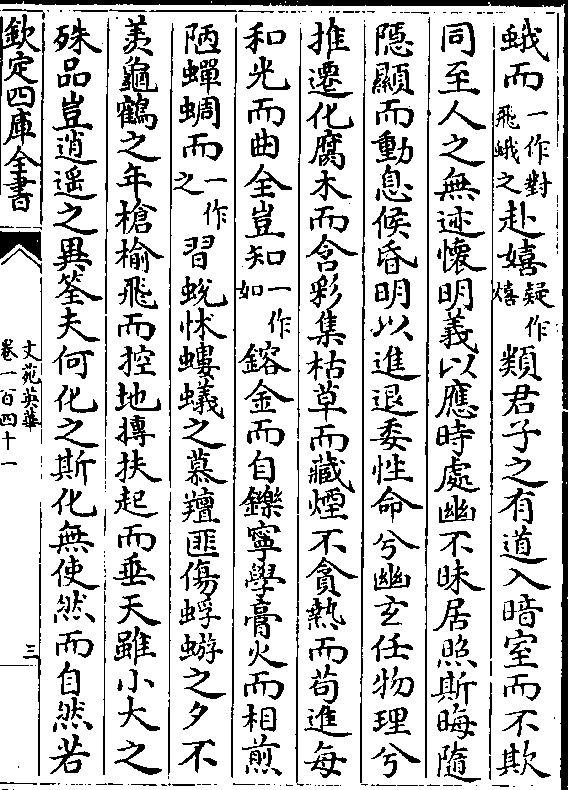 蛾而一作對飛蛾之赴嬉疑作熺類君子之有道入暗室而不欺
同至人之無迹懷明義以應時處幽不昧居照斯晦隨
隱顯而動息候昏明以進退委性命兮幽玄任物理兮
推遷化腐木而含彩集枯草而藏煙不貪熱而苟進每
和光而曲全豈知一作如鎔金而自鑠寧學膏火而相煎
陋蟬蜩而一作之習蛻怵螻蟻之慕羶匪傷蜉蝣之夕不
羨龜鶴之年槍榆飛而控地摶扶起而垂天雖小大之
殊品豈逍遥之異筌夫何化之斯化無使然而自然若
欽定四庫全書
文苑英華
卷一百四十一
三